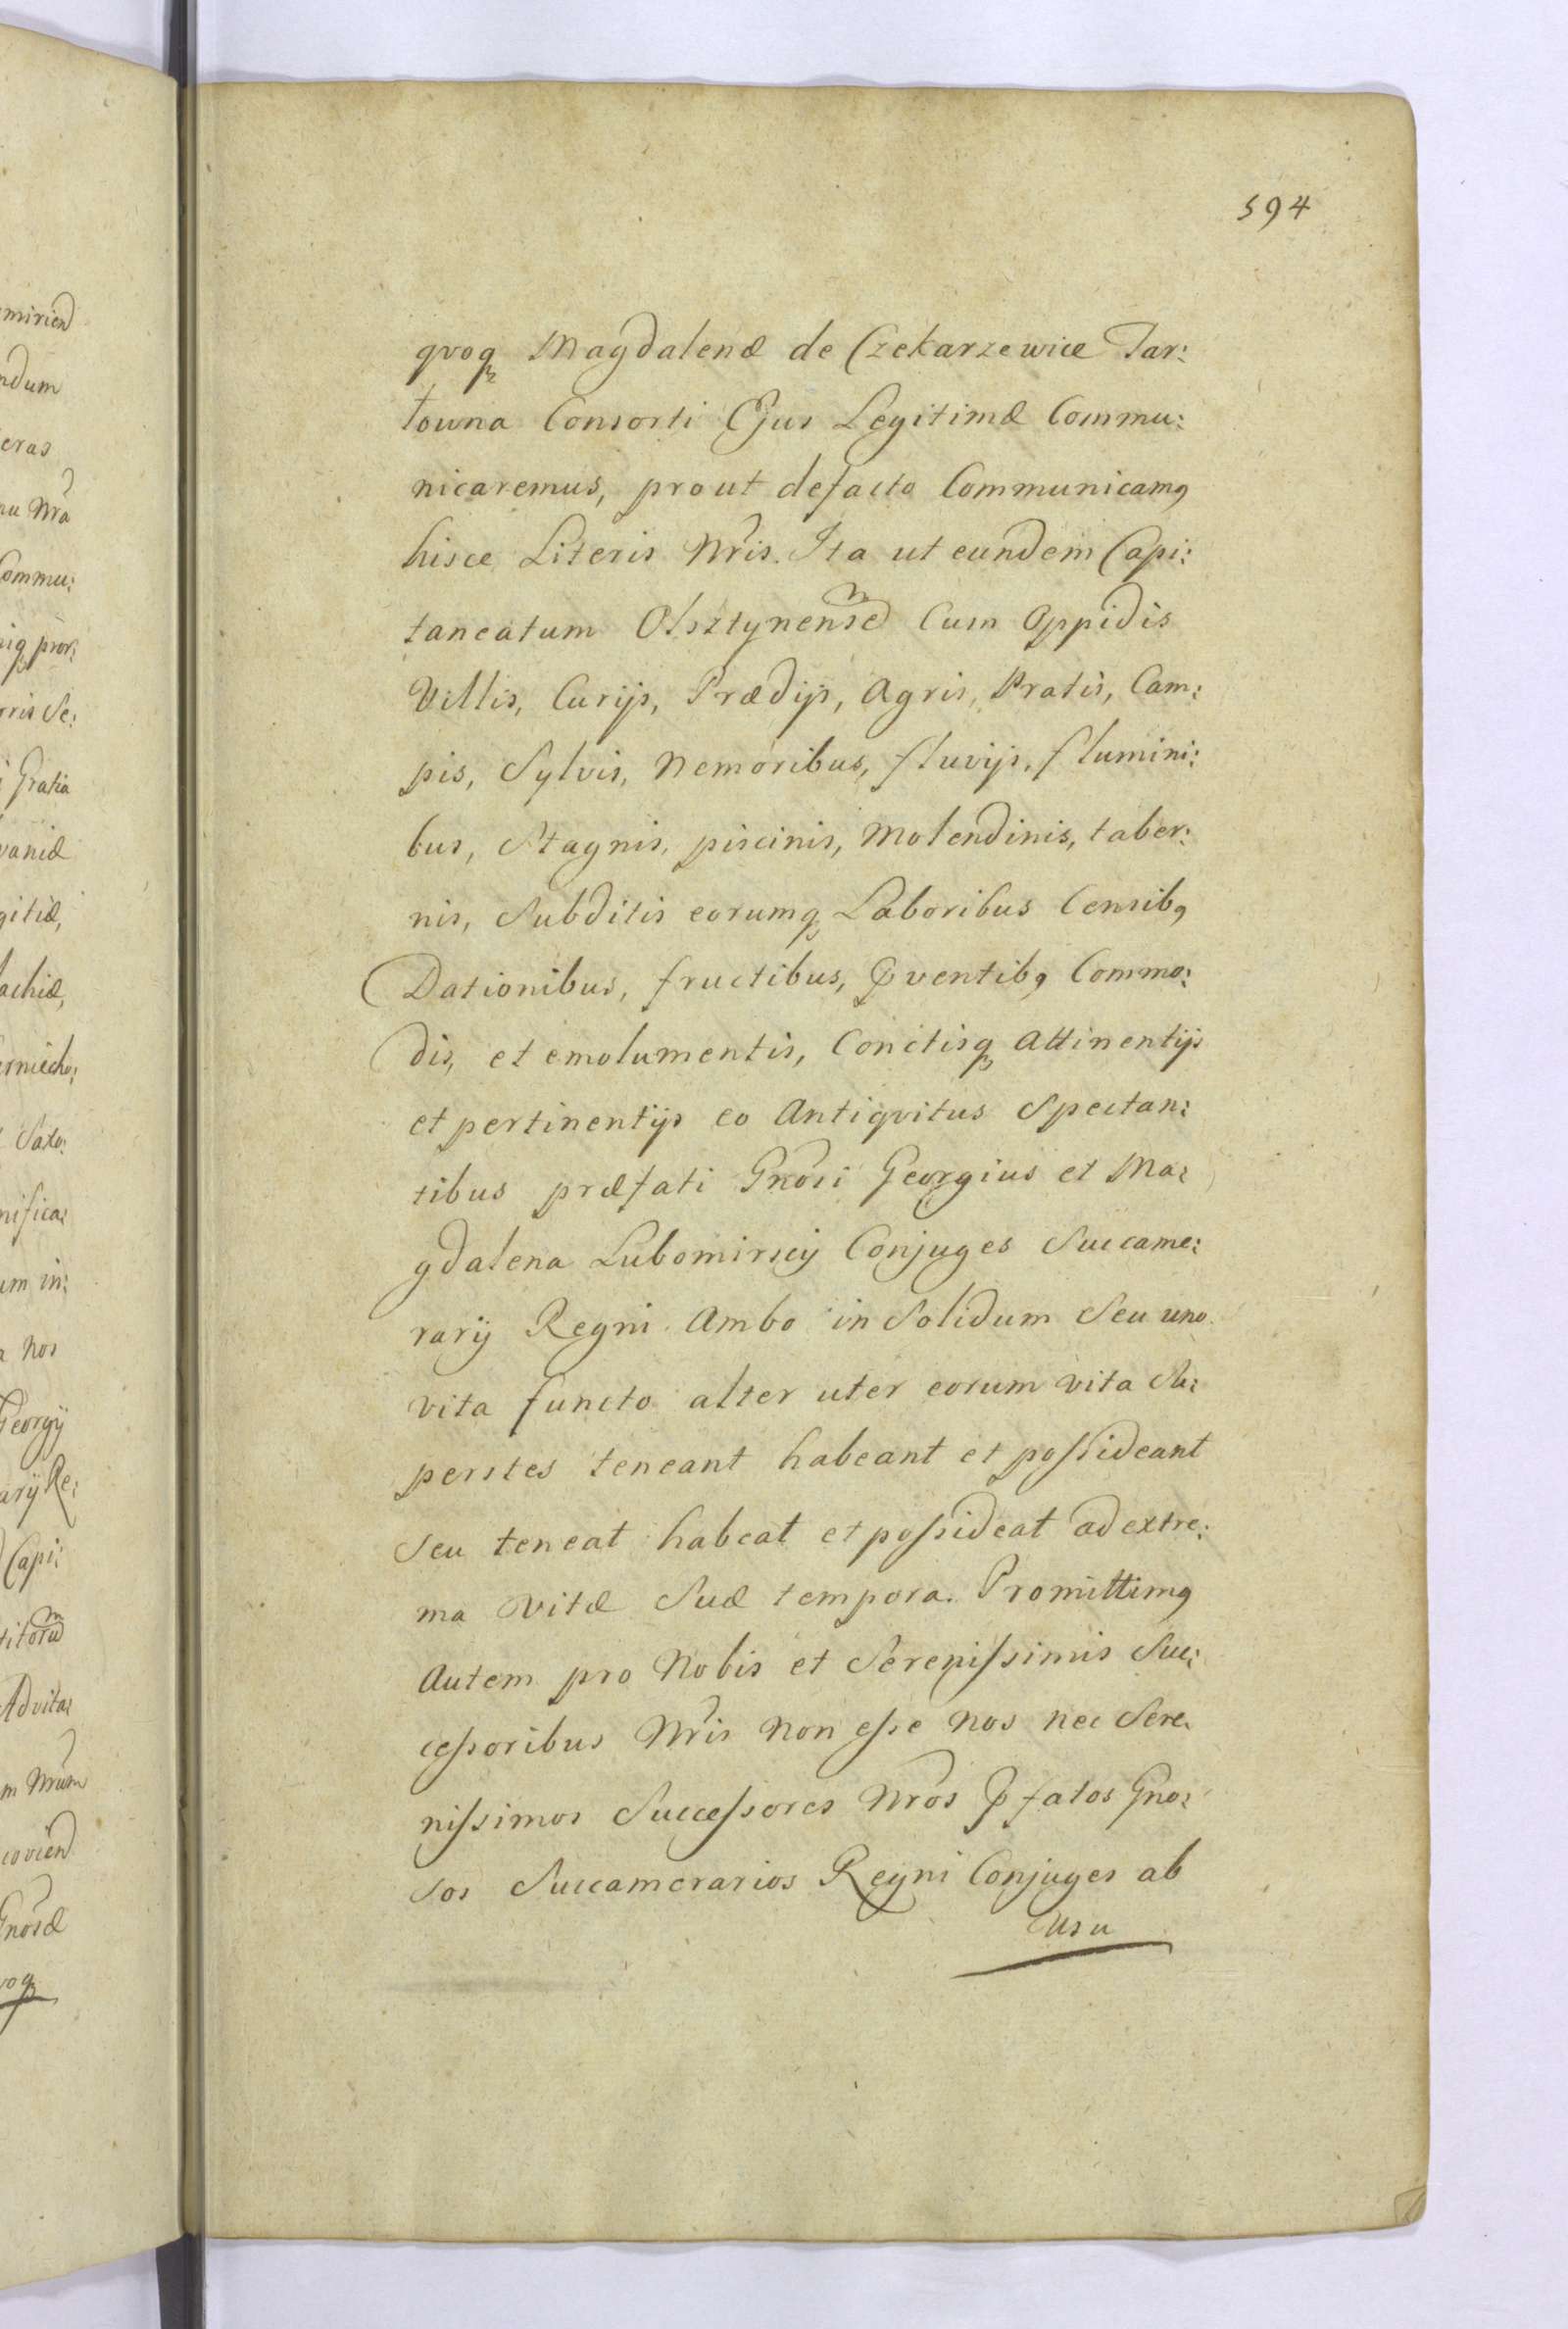 594
quoq Magdalenæ de Czekarzewice Tar:
łowna Consorti Ejus Legitimæ Commu:
nicaremus, prout defacto Communicamq
hisce Literis Nris. Ita ut eundem Capi:
taneatum Olsztynensem Cum Oppidis
Villis, Curijs, Prædijs, Agris, Pratis, Cam:
pis, Sylvis, Nemoribus, fluvijs, flumini:
bus, Stagnis, piscinis, Molendinis, taber:
nis, Subditis eorumq Laboribus Censibq
Dationibus, fructibus, Pventibq Commo:
dis, et emolumentis, Conctisq Attinentijs
et pertinentijs eo Antiqvitus Spectan:
tibus præfati Gnosi Georgius et Ma:
gdalena Lubomirscÿ Conjuges Succame:
rarÿ Regni Ambo in Solidum Seu uno
vita functo alter uter eorum vita Su:
perstes teneant habeant et possideant
Seu teneat habeat et possideat ad extre:
ma Vitæ Suæ tempora. Promittimq
Autem pro Nobis et Serenissimis Suc:
cessoribus Nris Non esse Nos nec Sere:
nissimos Successores Nros Pfatos Gno:
sos Succamerarios Regni Conjuges ab
Usu
mirien
ndum
eras
nu Nra
Commu:
niq pror:
rris Se:
i Gratia
vaniæ
gitiæ,
achiæ,
erniecho:
Saxo:
nifica:
um in:
a Nos
Georgÿ
arÿ Re:
Capi:
titorum
Advita:
m Nrum
coviend
Gnosæ
voq